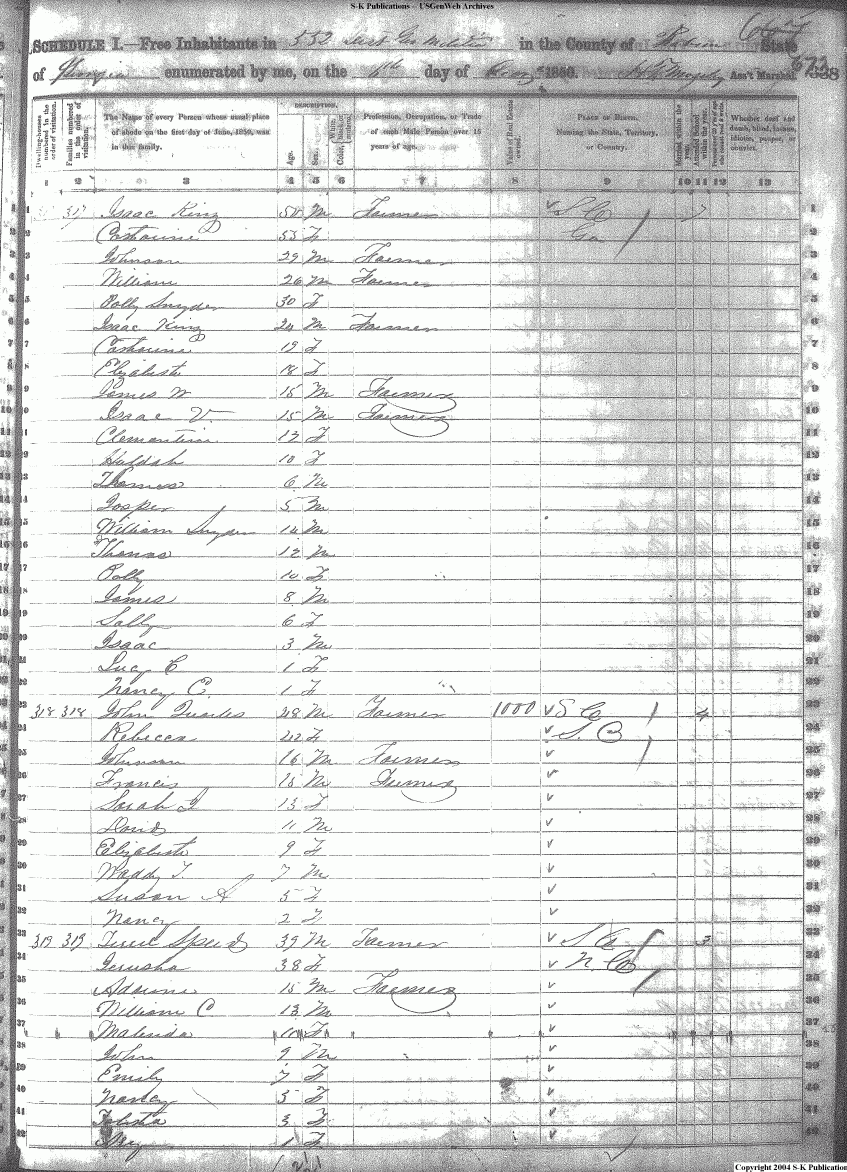 S-K Publications – USGenWeb Archives
SCHEDULE I.—Free Inhabitants in 552 Dist Ga Militia in the County of Rabun State
of Georgia enumerated by me, on the day of 1850. Ass't Marshal. 338
Dwelling-houses numbered in the order of visitation.
Families numbered in the order of visitation.
The Name of every Person whose usual place of abode on the first day of June, 1850, was in this family.
DESCRIPTION.
Age.
Sex.
Color, White, black, or mulatto.
Profession, Occupation, or Trade of each Male Person over 15 years of age.
Value of Real Estate owned.
PLACE OF BIRTH.
Naming the State, Territory, or Country.
Married within the year.
Attended School within the year.
Whether deaf and dumb, blind, insane, idiotic, pauper, or convict.
1 2 3 4 5 6 7 8 9 10 11 12 13
1 317 Isaac King M Farmer S C 1
2 Catharine 53 F Ga 2
3 Johnson 29 M Farmer 3
4 William 26 M Farmer 4
5 Polly Snyder 30 F 5
6 Isaac King 24 M Farmer 6
7 Catharine 19 F 7
8 Elizabeth 18 F 8
9 James W 15 M Farmer 9
10 Isaac V. 15 M Farmer 10
11 Clementine F 11
12 Huldah 10 F 12
13 Thomas 6 M 13
14 Jasper 5 M 14
15 William Snyder 14 M 15
16 Thomas 12 M 16
17 Polly 10 F 17
18 James 8 M 18
19 Sally 6 F 19
20 Isaac 3 M 20
21 Lucy C 1 F 21
22 Nancy C. 1 F 22
23 318 318 John Quarles 48 M Farmer 1000 S C 4 23
24 Rebecca 42 F S. C 24
25 Johnson 16 M Farmer 25
26 Francis 15 M Farmer 26
27 Sarah J 13 F 27
28 David 11 M 28
29 Elizabeth 9 F 29
30 Waddy T. 7 M 30
31 Susan A 5 F 31
32 Nancy 2 F 32
33 319 319 Speed 39 M Farmer S C 3 33
34 Jerusha 38 F N C 34
35 15 M Farmer 35
36 William C 13 M 36
37 Malinda F 37
38 John 9 M 38
39 Emily 7 F 39
40 Nancy 5 F 40
41 3 F 41
42 1 F 42
Copyright 2004 S-K Publications